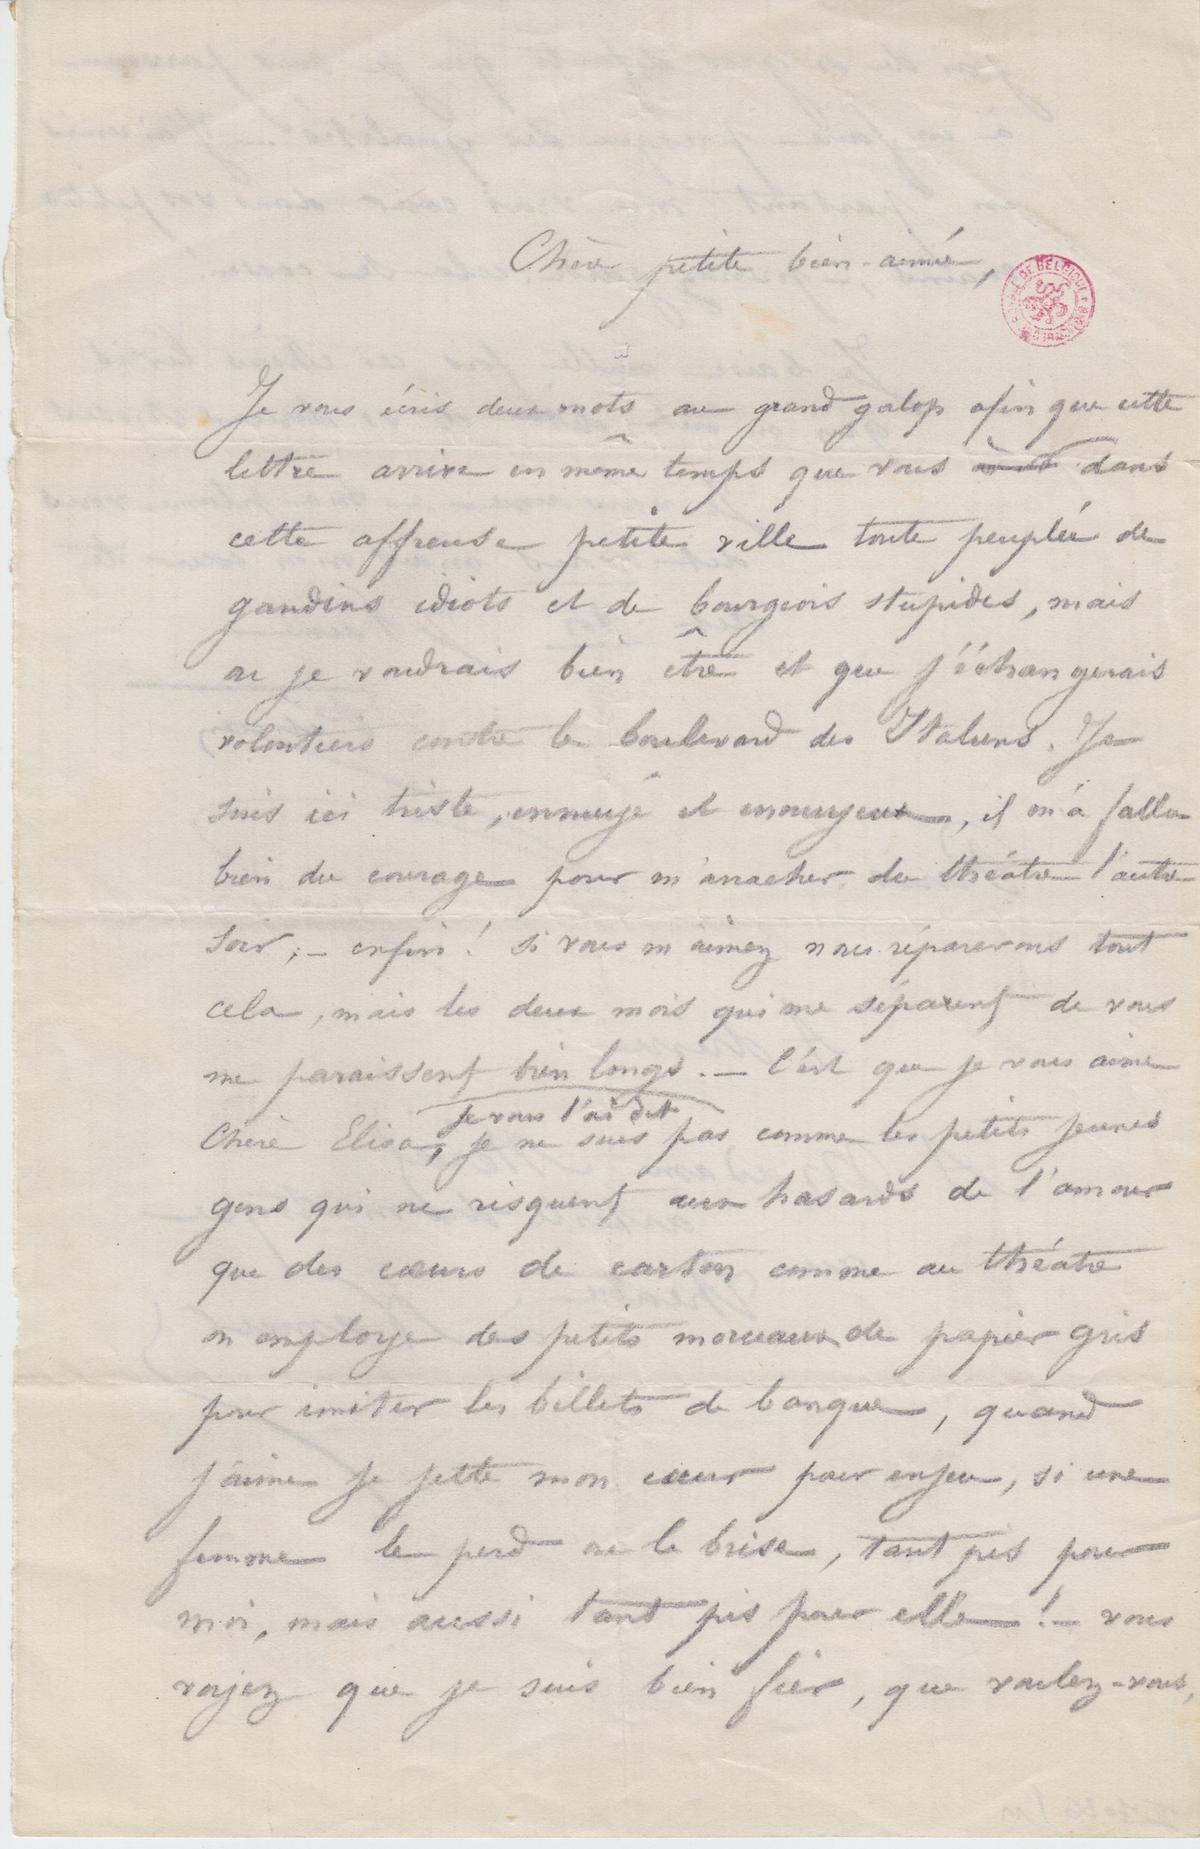 Chère petite bien-aimée,
Je vous écris deux mots au grand galop afin que cette
lettre arrive en même temps que vous dans
cette affreuse petite ville toute peuplée de
gandins idiots et de bourgeois stupides, mais
ou je voudrais bien être et que j'échangerais
volontiers contre le boulevard des Italiens. Je
suis ici triste, ennuyé et ennuyeux, il m'a fallu
bien du courage pour m'arracher du théâtre l'autre
soir ; - enfin ! si vous m'aimez nous réparerons tout
cela, mais les deux mois qui me séparent de vous
me paraissent bien longs. — C'est que je vous aime
je vous l'ai dit
Chère Elisa, je ne suis pas comme les petits jeunes
gens qui ne risquent aux hasards de l'amour
que des cœurs de carton comme au théâtre
on employe des petits morceaux de papier gris
pour imiter les billets de banque, quand
j'aime je jette mon cœur pour enjeu, si une
femme le perd ou le brise, tant pis pour
moi, mais aussi tant pis pour elle ! - vous
voyez que je suis bien fier, que voulez-vous,